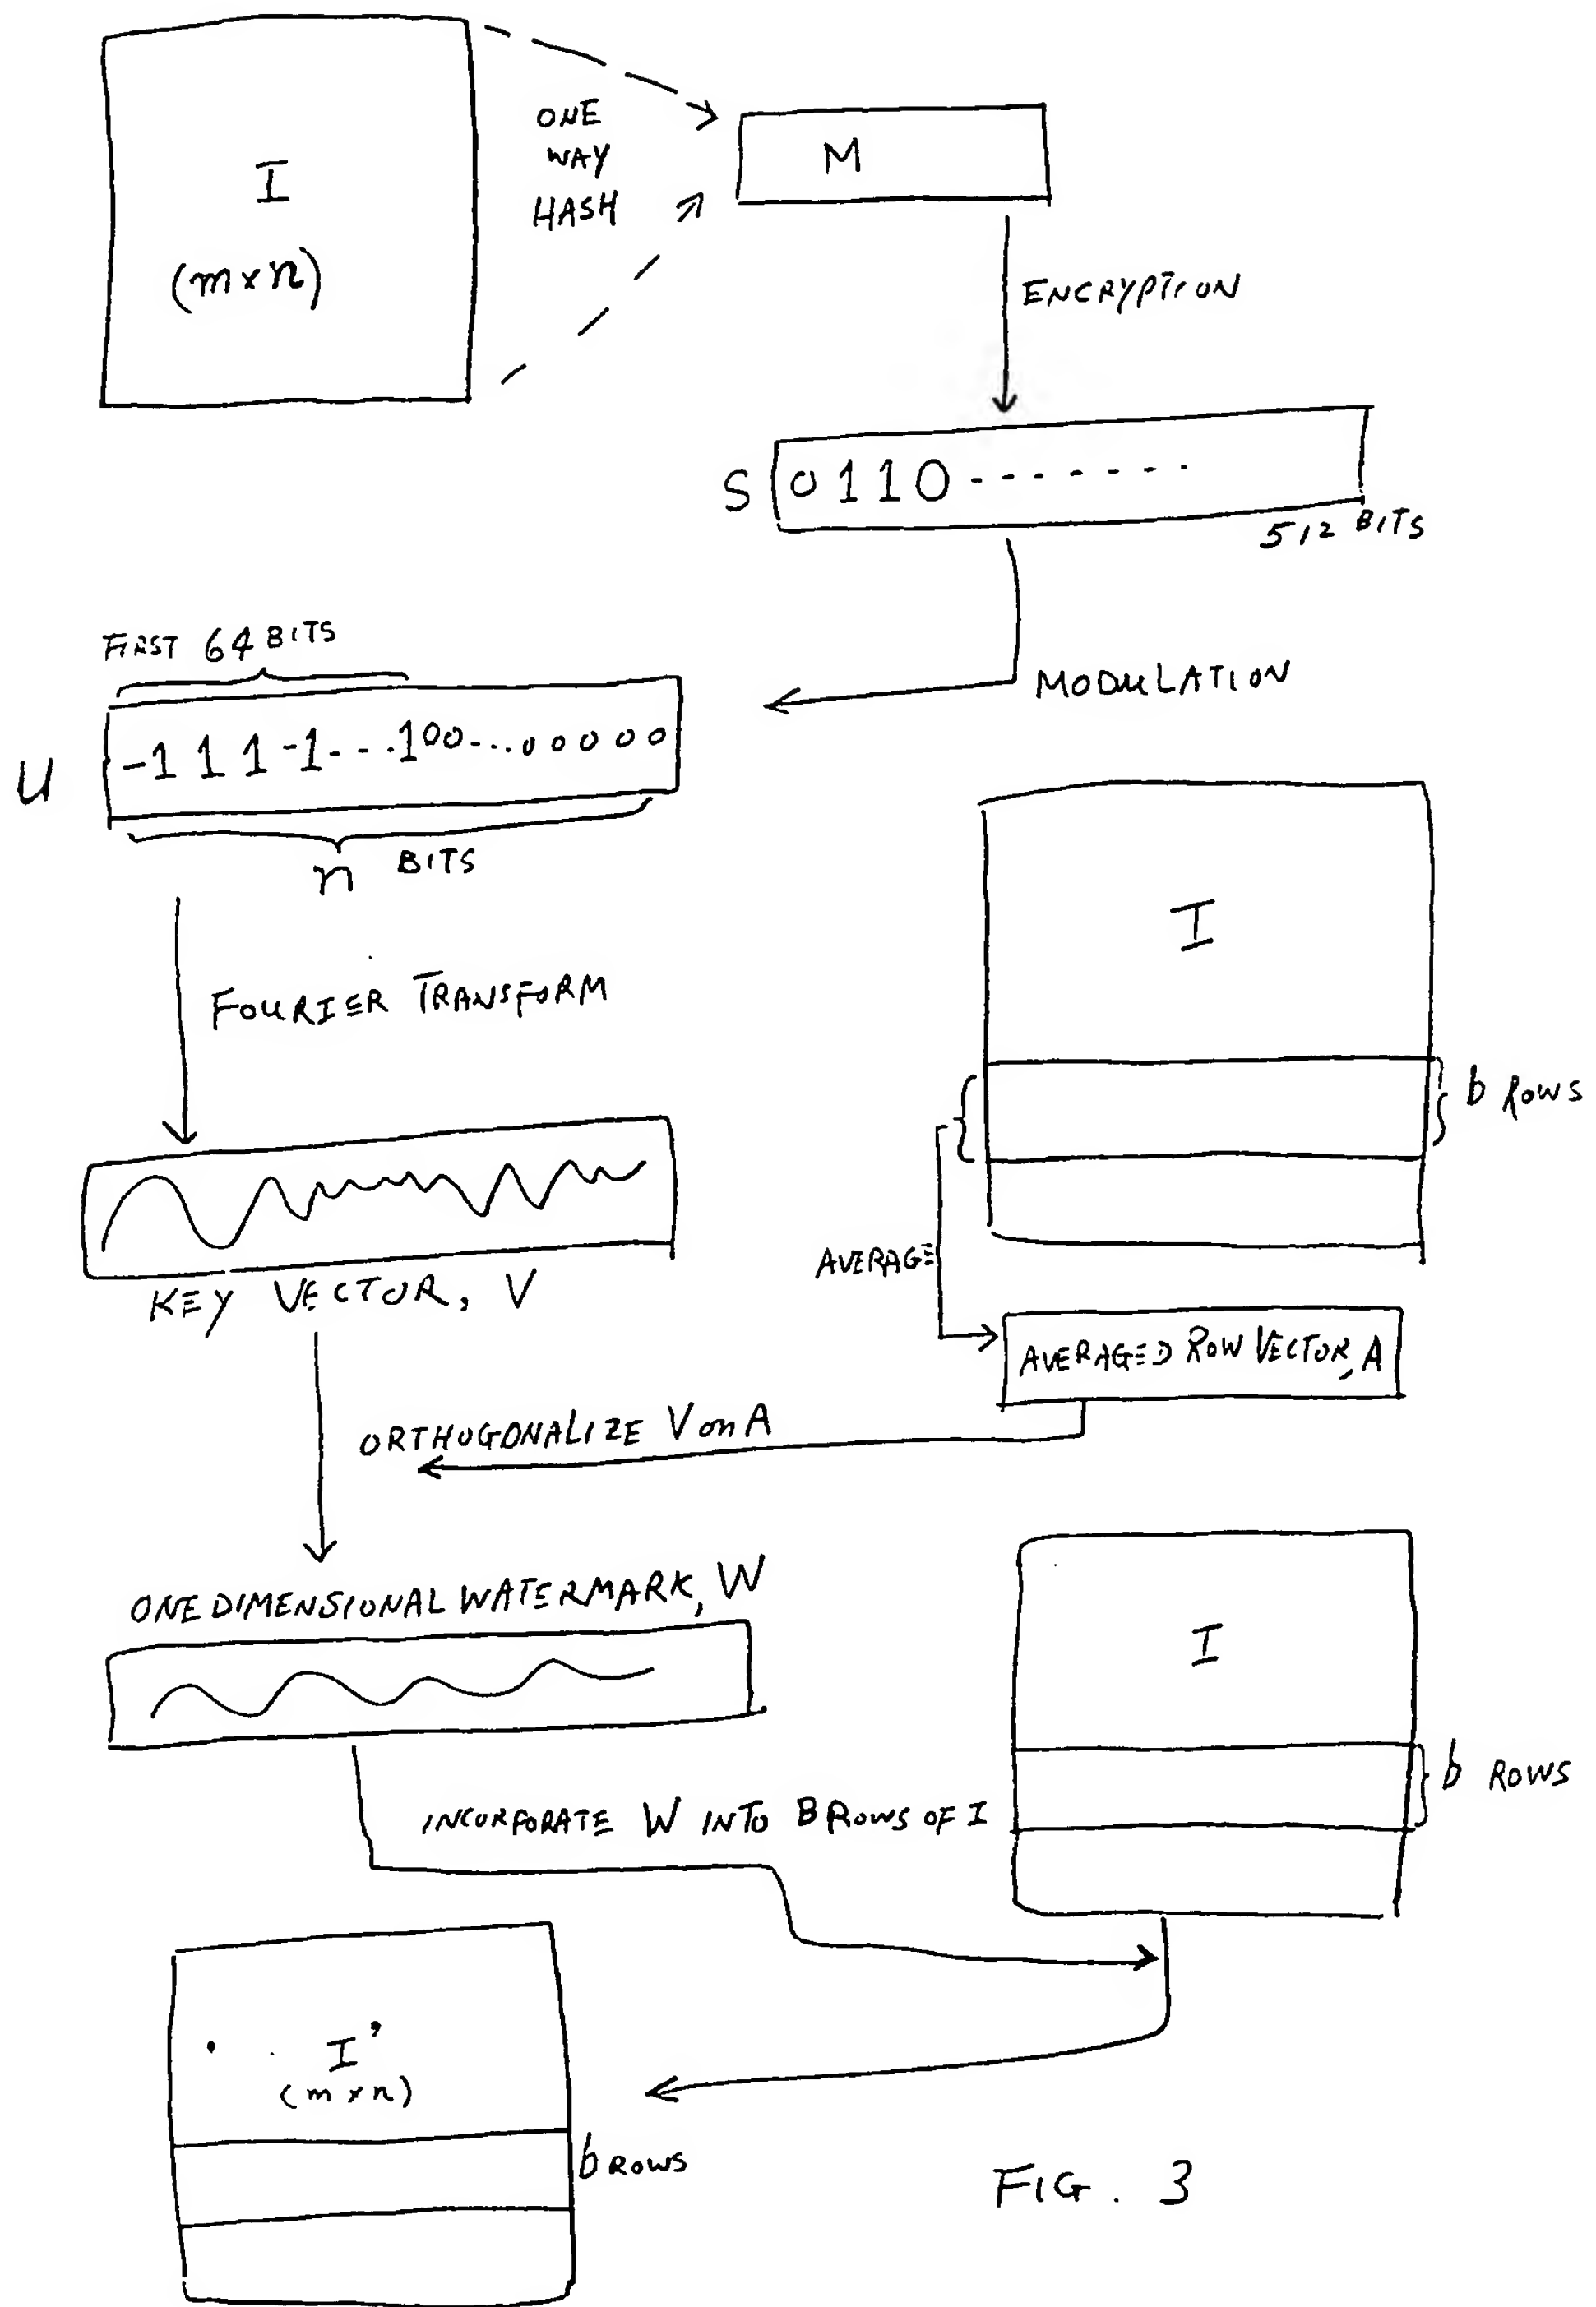 I
(m×n)
ONE
WAY
HASH
M
ENCRYPTION
S 0110-------
512 BITS
MODULATION
FIRST 64 BITS
U -1 1 1 -1---.100...00000
n BITS
FOURIER TRANSFORM
I
b ROWS
KEY VECTOR, V
AVERAGE
AVERAGED ROW VECTOR, A
ORTHOGONALIZE V on A
ONE DIMENSIONAL WATERMARK, W
I
b ROWS
INCORPORATE W INTO B ROWS OF I
I'
(m×n)
b ROWS
FIG. 3